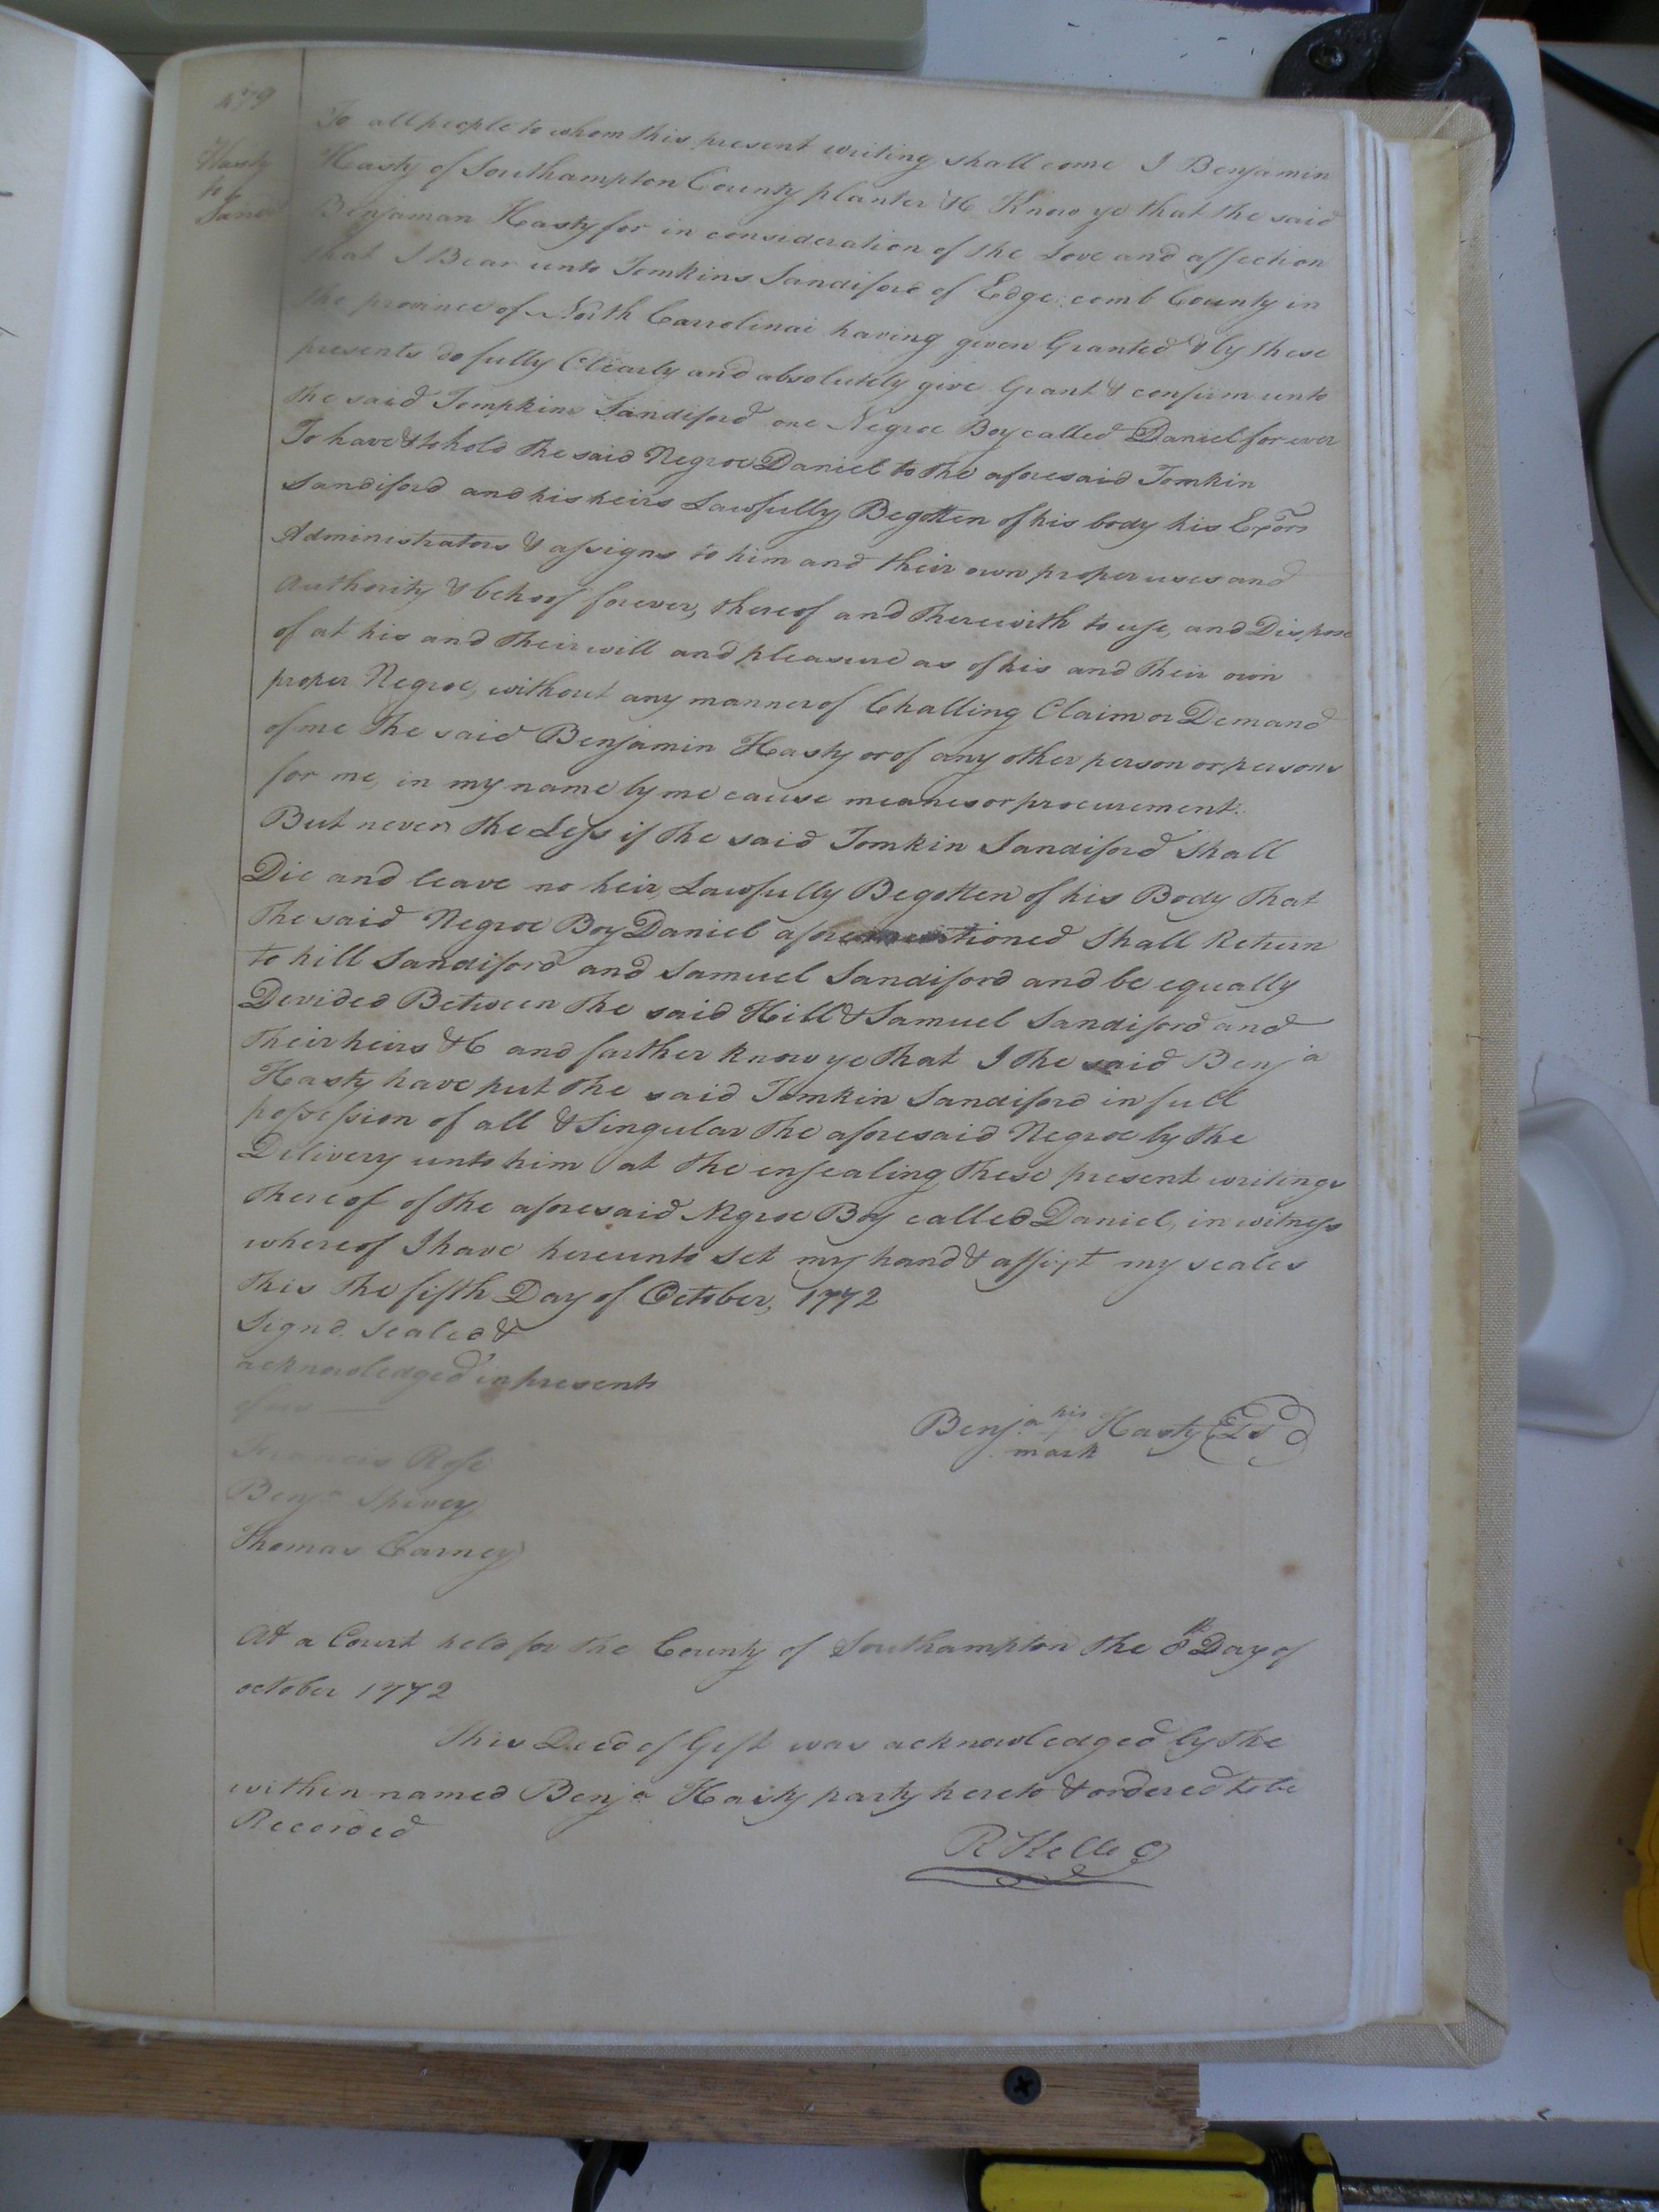 479
Hasty
to
Sand
To all people to whom this present writing shall come I Benjamin
Hasty of Southampton County planter &C Know ye that the said
Benjaman Hasty for in consideration of the Love and affection
that I Bear unto Tomkins Sandiford of Edgecomb County in
the province of North Carrolinai having given Granted & by these
presents do fully Clearly and absolutely give Grant & confirm unto
the said Tompkins Sandiford one Negroe Boy called Daniel for ever
To have & to hold the said Negroe Daniel to the aforesaid Tomkin
Sandiford and his heirs Lawfully Begotten of his body his Exors
Administrators & assigns to him and their own proper uses and
Authority & behoof forever, thereof and therewith to use, and Dispose
of at his and their will and pleasure as of his and their own
proper Negroe, without any manner of Challing Claim or Demand
of me the said Benjamin Hasty or of any other person or persons
for me, in my name by me cause meanes or procurement.
But never the Less if the said Tomkin Sandiford shall
Die and leave no heir Lawfully Begotten of his Body that
the said Negroe Boy Daniel aforementioned shall Return
to hill Sandiford and Samuel Sandiford and be equally
Devided Between the said Hill & Samuel Sandiford and
their heirs &C and farther know ye that I the said Benja
Hasty have put the said Tomkin Sandiford in full
possession of all & Singular the aforesaid Negroe by the
Delivery unto him at the ensealing these present writings
thereof of the aforesaid Negroe Boy called Daniel, in witness
whereof I have hereunto set my hand & affixt my seales
this the fifth Day of October, 1772
Signd. Sealed &
acknowledged in presents
of us
Benja his Hasty LS
mark
Francis Rose
Benja Spivey
Thomas Carney
At a Court held for the County of Southampton the 8th Day of
october 1772
This Deed of Gift was acknowledged by the
within named Benja Hasty party hereto & ordered to be
Recorded
R Kello C